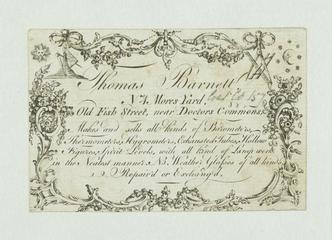 Thomas Barnett
No. 4, Mores Yard,
Old Fish Street, near Doctors Commons,
Makes and sells all kinds of Barometers,
Thermometers, Hygrometers, Exhausted Tubes, Hollow
Figures, Spirit Levels, with all kind of Lamp work
in the Neatest manner, NB. Weather Glasses of all kinds
Repair'd or Exchang'd.